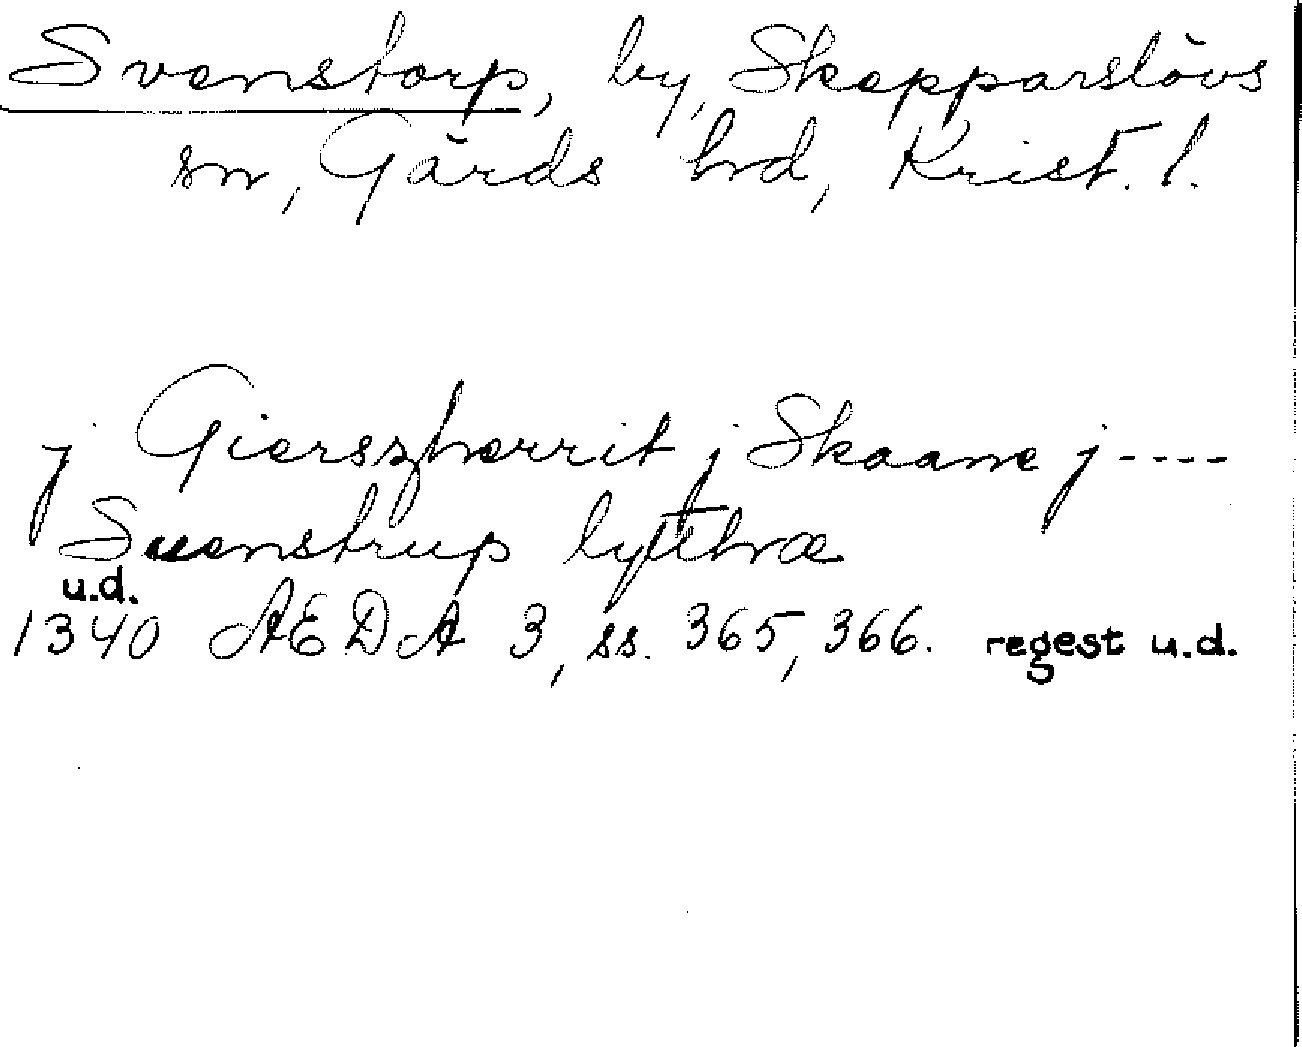 Svenstorp, by, Skepparslövs
sn, Gärds hd, Krist. l.
j Gierszherrit j Skaane j ----
Suenstrup lythræ
u.d.
1340 ÆDA 3, ss. 365, 366. regest u.d.